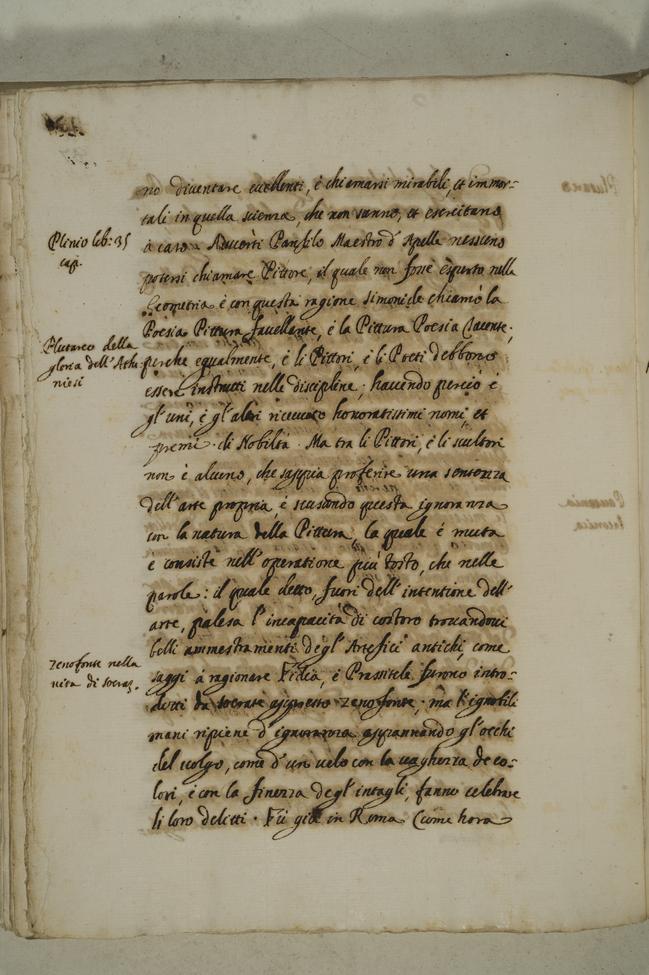 no diventare eccellenti, è chiamarsi mirabili, et immor-
tali in quella scienza, che non sanno, et esercitano
Plinio lib: 35
cap.
à caso. Avverti Panfilo Maestro d'Apelle nessuno
potersi chiamare Pittore, il quale non fosse esperto nella
Geometria è con questa ragione simonide chiamò la
Poesia Pittura favellante, è la Pittura Poesia tacente,
Plutarco della
gloria dell'Athe
niesi
perche egualmente, è li Pittori, è li Poeti debbono
essere instrutti nelle discipline, havendo perciò è
gl'uni, è gl'altri ricevuto honoratissimi nomi et
premi di Nobiltà. Ma tra li Pittori, è li scultori
non è alcuno, che sappia proferire una sentenza
dell'arte propria, è scusando questa ignoranza
con la natura della Pittura, la quale è muta
è consiste nell'operatione più tosto, che nelle
parole: il quale detto, fuori dell'intentione dell'
arte, palesa l'incapacità di costoro trovandovi
belli ammestramenti degl'Artefici antichi, come
Zenofonte nella
vita di socraz.
saggi à ragionare Fidia, è Prassitele furono intro-
dotti da socrate appresso Zenofonte; ma l'ignobili
mani ripiene d'ignoranza appannando gl'occhi
del volgo, come d'un velo con la vaghezza de co-
lori, è con la finezza degl'intagli, fanno celebrare
li loro delitti. Fù già in Roma (come hora